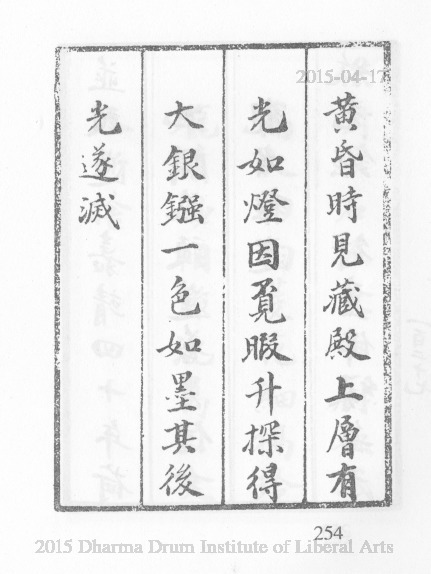 2015-04-17
黃昏時見藏殿上層有
光如燈因覓暇升探得
大銀鏹一色如墨其後
光遂滅
254
2015 Dharma Drum Institute of Liberal Arts